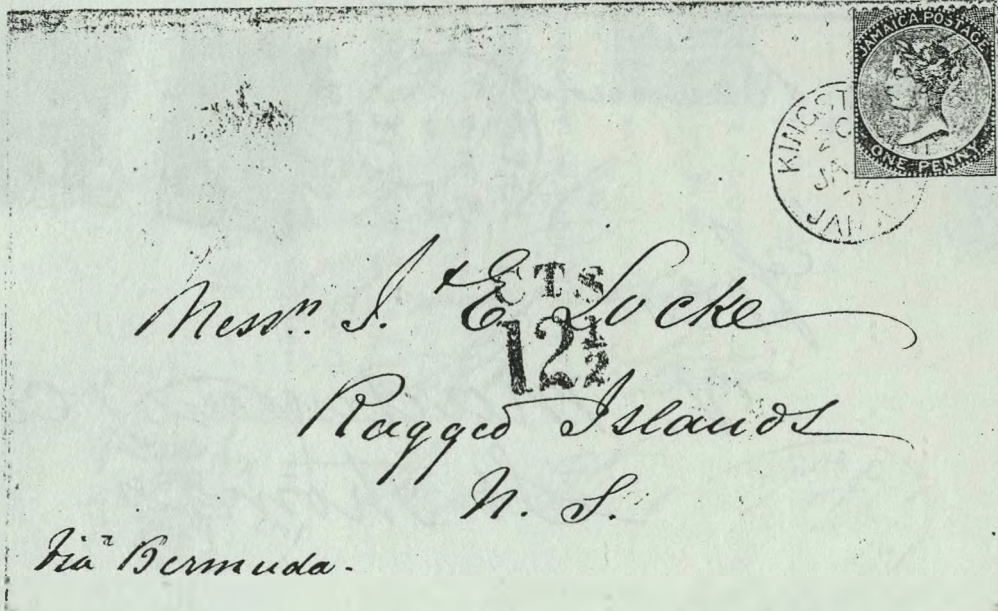 JAMAICA POSTAGE
ONE PENNY
CTS
12½
Messrs. J. & E. Locke
Ragged Islands
N. S.
Via Bermuda.